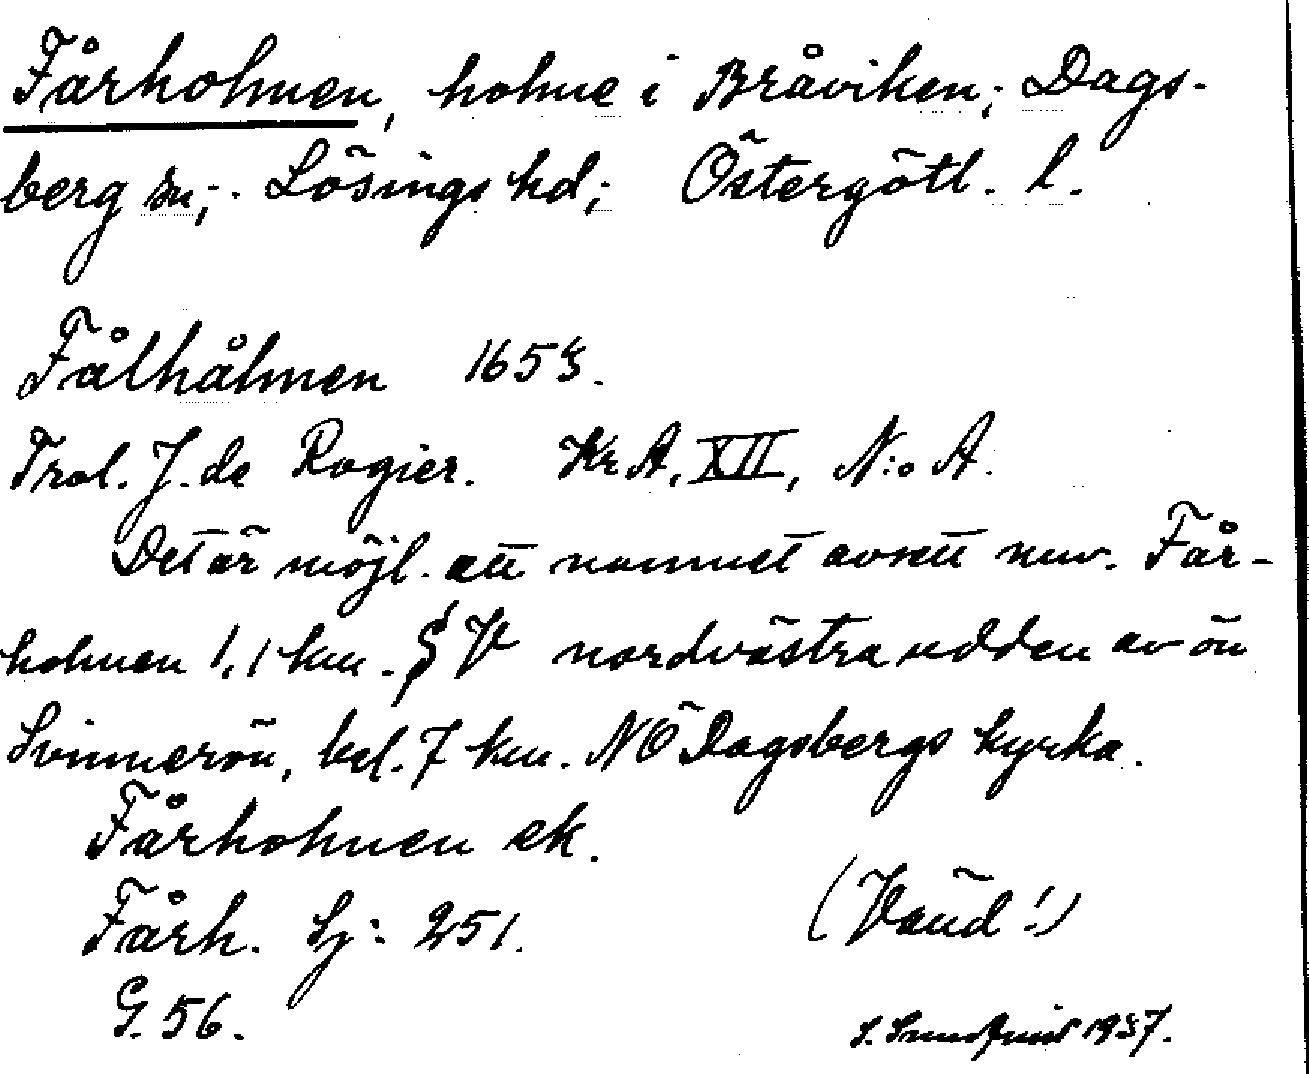 Fårholmen, holme i Bråviken; Dags-
berg sn; Lösings hd; Östergötl. l.
Fålhålmen 1653.
Trol. J. de Rogier. Kr A. XII, N:o A.
Det är möjl. att namnet avsett nuv. Får-
holmen 1,1 km. V nordvästra udden av ön
Svinnerön, bel. 7 km. NÖ Dagsbergs kyrka.
Fårholmen ek.
Fårh. Sj: 251. (Vänd!)
G. 56.
1937.